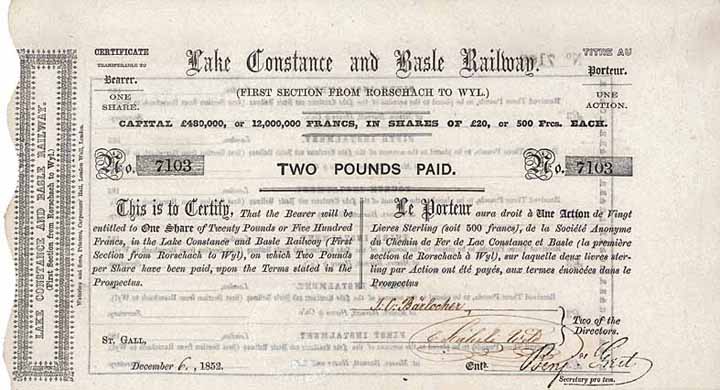 LAKE CONSTANCE AND BASLE RAILWAY.
(First Section from Rorschach to Wyl.)
CERTIFICATE
TRANSFERABLE TO
Bearer.
ONE
SHARE.
Lake Constance and Basle Railway.
(FIRST SECTION FROM RORSCHACH TO WYL.)
TITRE AU
Porteur.
UNE
ACTION.
CAPITAL £480,000, or 12,000,000 FRANCS, IN SHARES OF £20, or 500 Frcs. EACH.
No. 7103
TWO POUNDS PAID.
No. 7103
This is to Certify, That the Bearer will be
entitled to One Share of Twenty Pounds or Five Hundred
Francs, in the Lake Constance and Basle Railway (First
Section from Rorschach to Wyl), on which Two Pounds
per Share have been paid, upon the Terms stated in the
Prospectus.
Le Porteur aura droit à Une Action de Vingt
Livres Sterling (soit 500 francs), de la Société Anonyme
du Chemin de Fer de Lac Constance et Basle (la première
section de Rorschach à Wyl), sur laquelle deux livres ster-
ling par Action ont été payés, aux termes énoncées dans le
Prospectus
J. C. Bärlocher
Two of the
Directors.
ST. GALL,
December 6, 1852.
Entd.
Secretary pro tem.